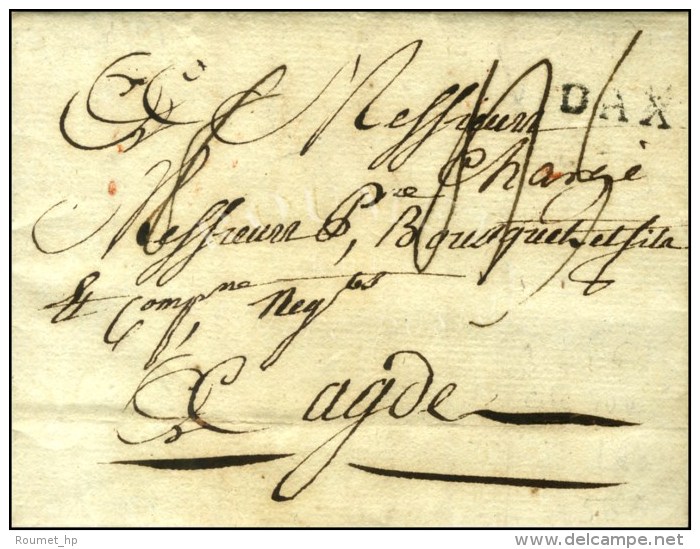 A Messieurs
DAX
Chargé
Messieurs P.re Bousquet et fils
& Comp.ne Neg.ts
A agde
Roumet_hp
delcampe.net